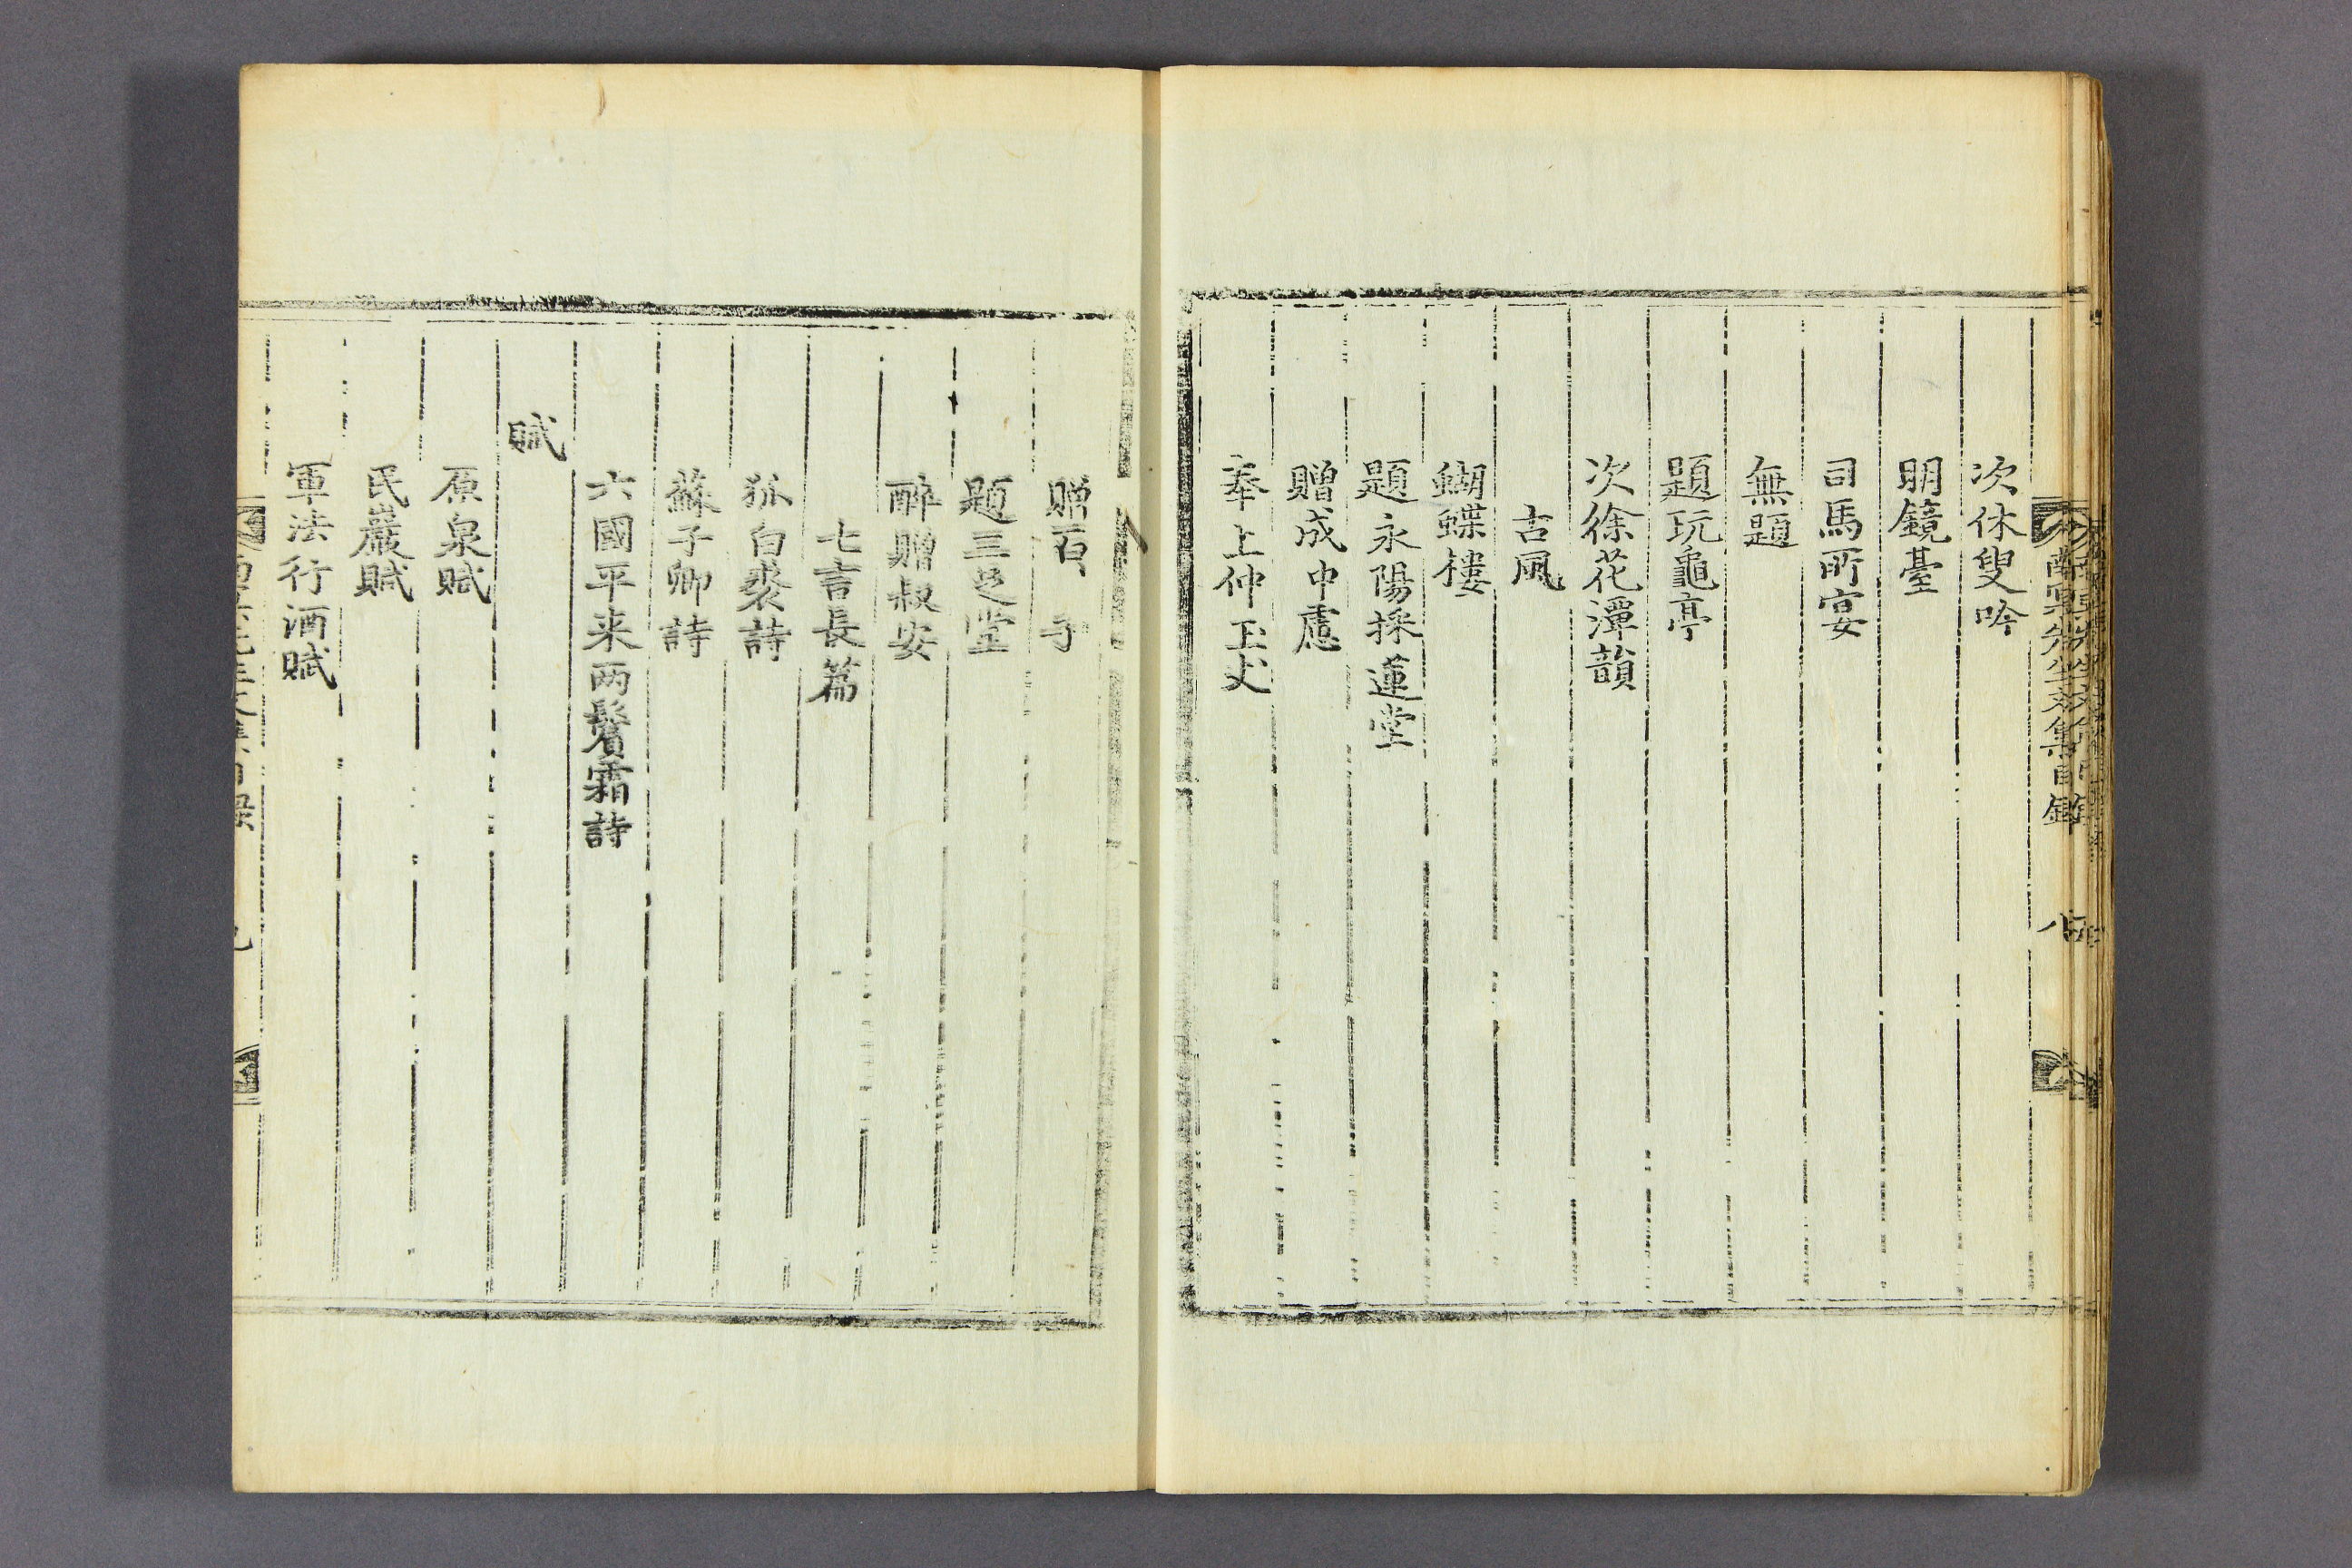 次休叟吟
明鏡臺
司馬所宴
無題
題玩龜亭
次徐花潭韻
古風
蝴蝶樓
題永陽採蓮堂
贈成中慮
奉上仲玉丈
贈君子
題三足堂
醉贈叔安
七言長篇
狐白裘詩
蘇子卿詩
六國平来两鬢霜詩
賦
原泉賦
民巖賦
軍法行酒賦